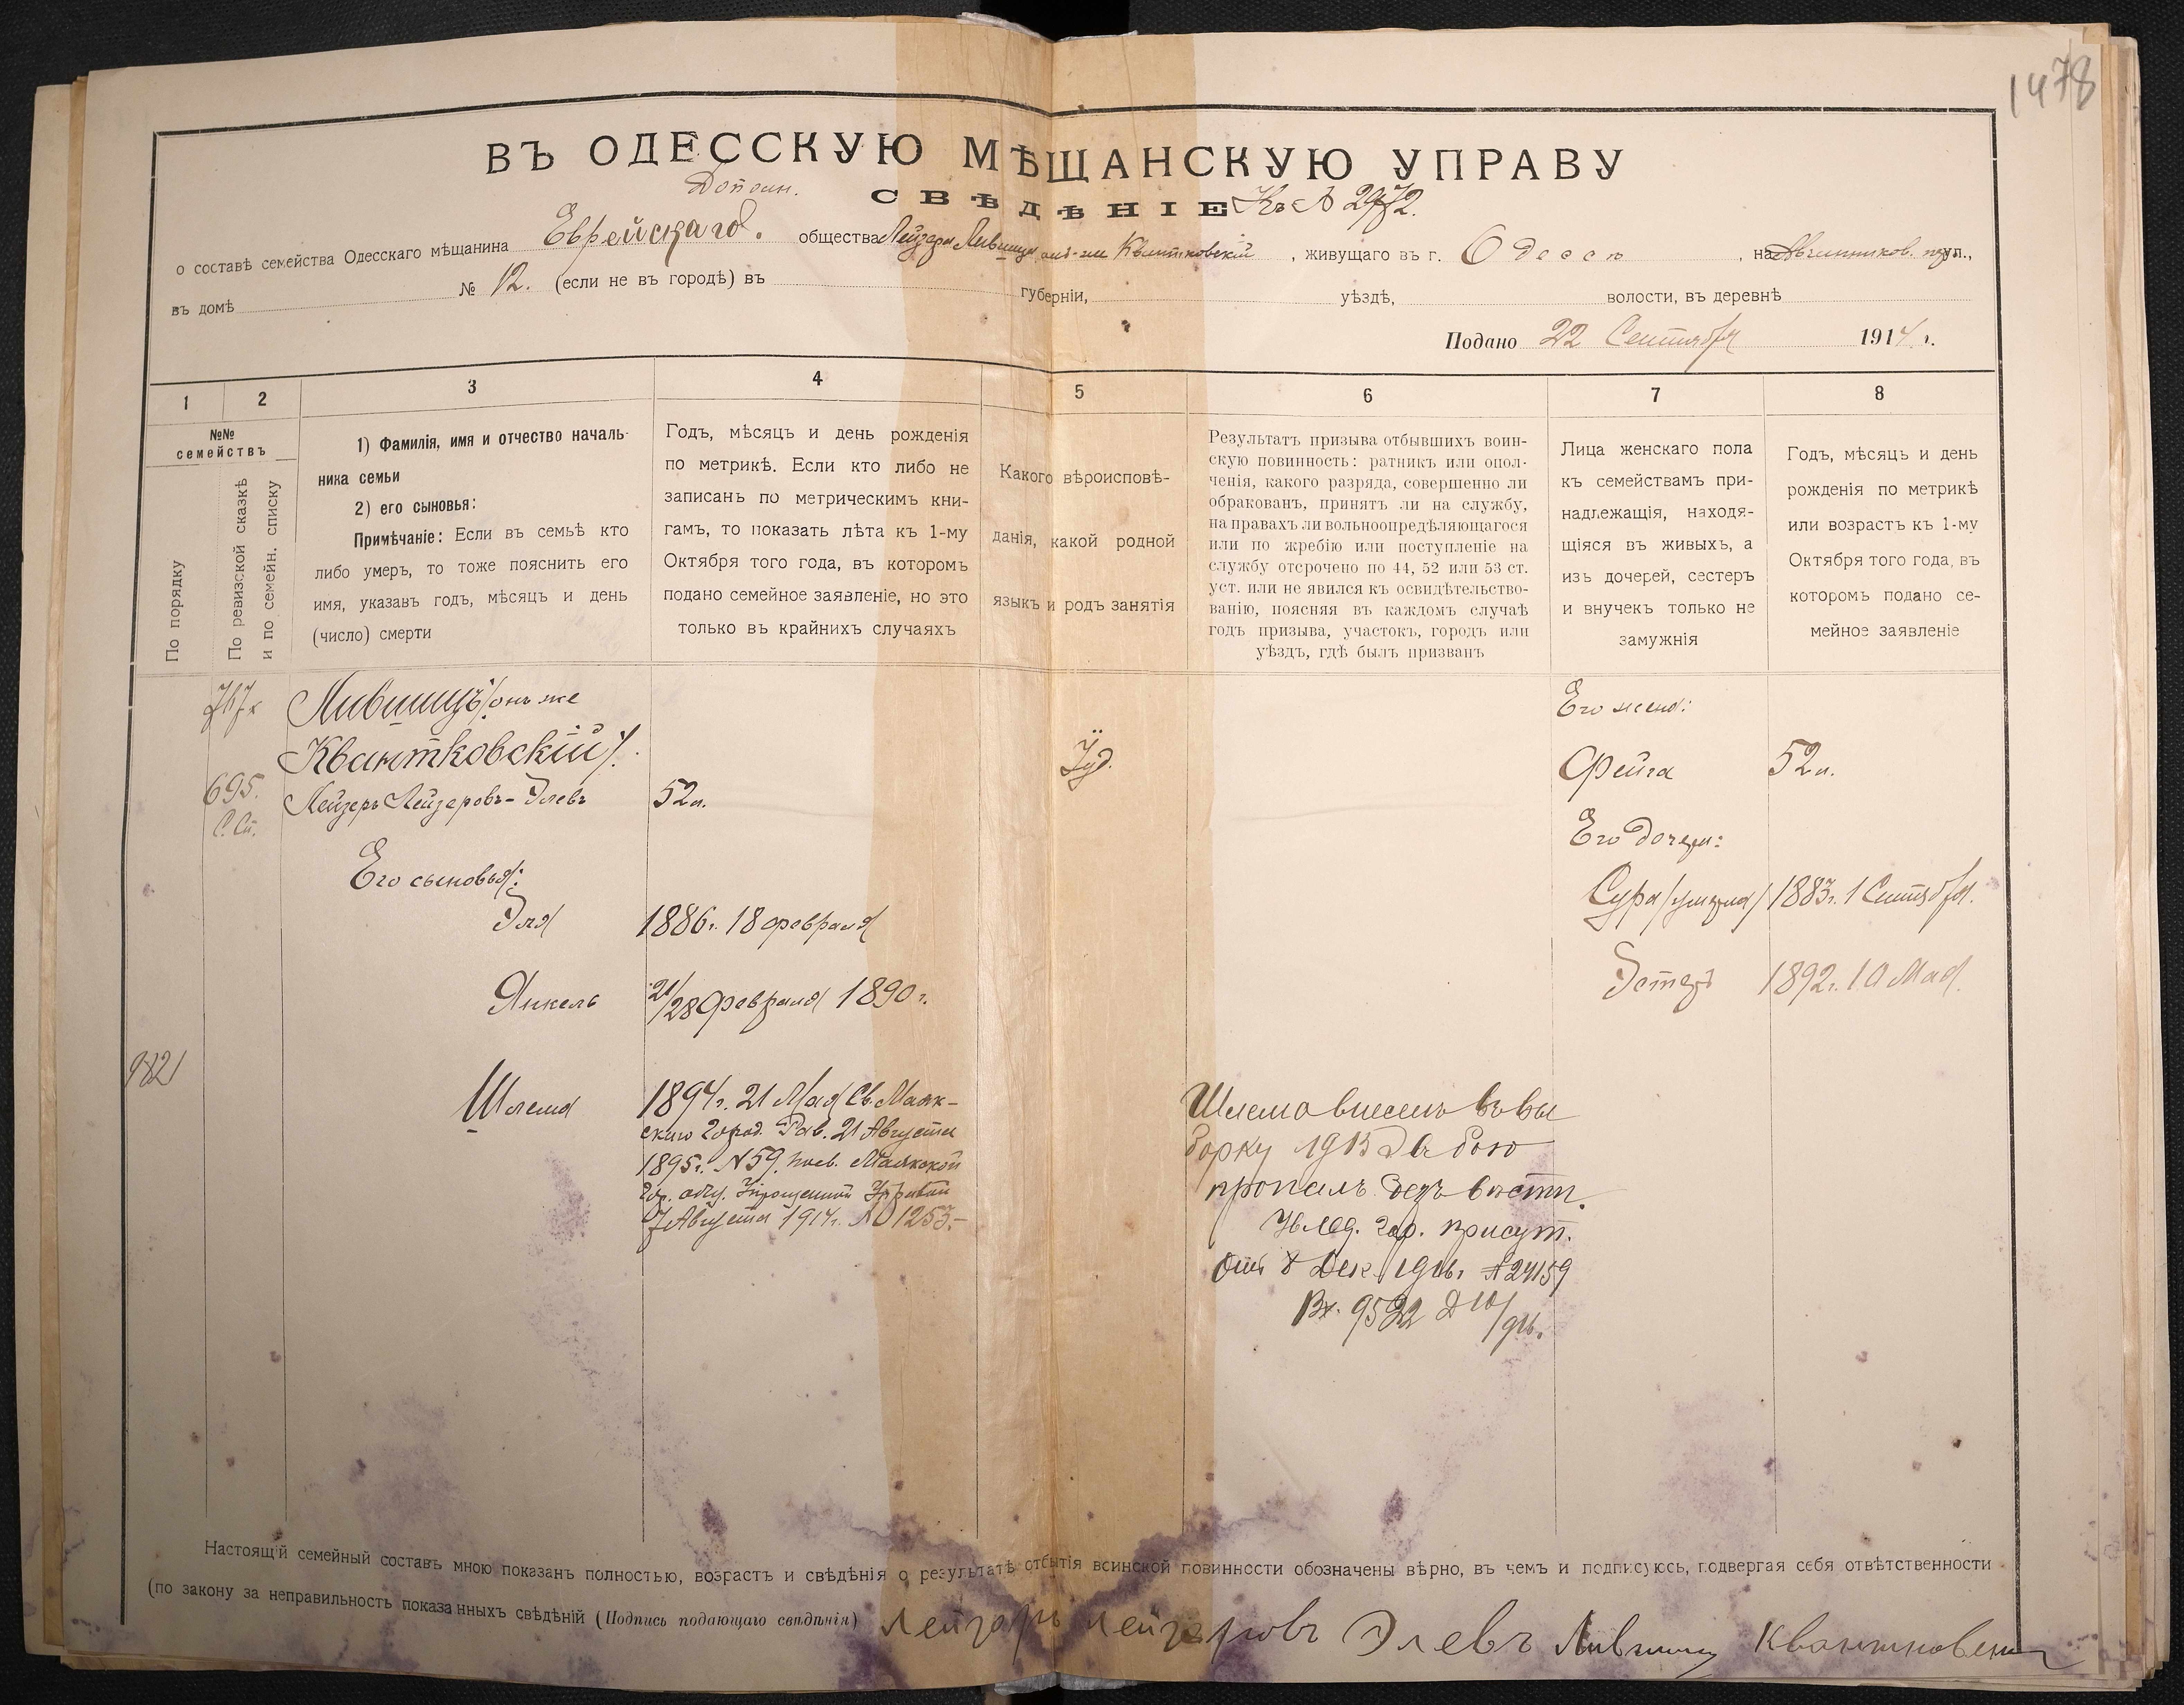 1478
ВЪ ОДЕССКУЮ МѢЩАНСКУЮ УПРАВУ
Дополн.
СВѢДѢНІЕ Къ № 2972.
о составѣ семейства Одесскаго мѣщанина Еврейскаго. общества Лейзера Лившица онъ-же Квантковскій, живущаго въ г. Одессѣ, на ул.,
въ домѣ № 12. (если не въ городѣ) въ губерніи, уѣздѣ, волости, въ деревнѣ
Подано 22 Сентября 1914 г.
1 2 3 4 5 6 7 8
№№ семействъ
По порядку
По ревизской сказкѣ
и по семейн. списку
1) Фамилія, имя и отчество началь-
ника семьи
2) его сыновья:
Примѣчаніе: Если въ семьѣ кто
либо умеръ, то тоже пояснить его
имя, указавъ годъ, мѣсяцъ и день
(число) смерти
Годъ, мѣсяцъ и день рожденія
по метрикѣ. Если кто либо не
записанъ по метрическимъ кни-
гамъ, то показать лѣта къ 1-му
Октября того года, въ которомъ
подано семейное заявленіе, но это
только въ крайнихъ случаяхъ
Какого вѣроисповѣ-
данія, какой родной
языкъ и родъ занятія
Результатъ призыва отбывшихъ воин-
скую повинность: ратникъ или опол-
ченія, какого разряда, совершенно ли
обракованъ, принятъ ли на службу,
на правахъ ли вольноопредѣляющагося
или по жребію или поступленіе на
службу отсрочено по 44, 52 или 53 ст.
уст. или не явился къ освидѣтельство-
ванію, поясняя въ каждомъ случаѣ
годъ призыва, участокъ, городъ или
уѣздъ, гдѣ былъ призванъ
Лица женскаго пола
къ семействамъ при-
надлежащія, находя-
щіяся въ живыхъ, а
изъ дочерей, сестеръ
и внучекъ только не
замужнія
Годъ, мѣсяцъ и день
рожденія по метрикѣ
или возрастъ къ 1-му
Октября того года, въ
которомъ подано се-
мейное заявленіе
767
Лившицъ /онъ же
Квантковскій/.
Іуд.
Его жена:
695.
С. Сп.
Лейзеръ Лейзеровъ-Элевъ 52 л.
Фейга 52 л.
Его дочери:
Его сыновья:
Эля 1886 г. 18 февраля
Сура /умерла/ 1883 г. 1 Сентября.
Янкель 21/28 февраля 1890 г.
Эстеръ 1892 г. 10 Мая.
982
Шлема
1894 г. 21 Мая Св. Маяк-
скаго Город. Рав. 21 Августа
1895 г. № 59. Маякской
Гор. общ. Упрощенной Управой
7 Августа 1914 г. № 1253.-
Шлема внесенъ въ вы
борку 1915 Въ бою
пропалъ безъ вѣсти.
Увѣд. гор. присут.
отъ 8 Дек. 1916 г. № 24159
Вх. 9522 Д 10/916.
Настоящій семейный составъ мною показанъ полностью, возрастъ и свѣдѣнія о результатѣ отбытія воинской повинности обозначены вѣрно, въ чемъ и подписуюсь, подвергая себя отвѣтственности
(по закону за неправильность показанныхъ свѣдѣній (Подпись подающаго свѣдѣнія) Лейзеръ Лейзеровъ Элевъ Лившиц Квантковский